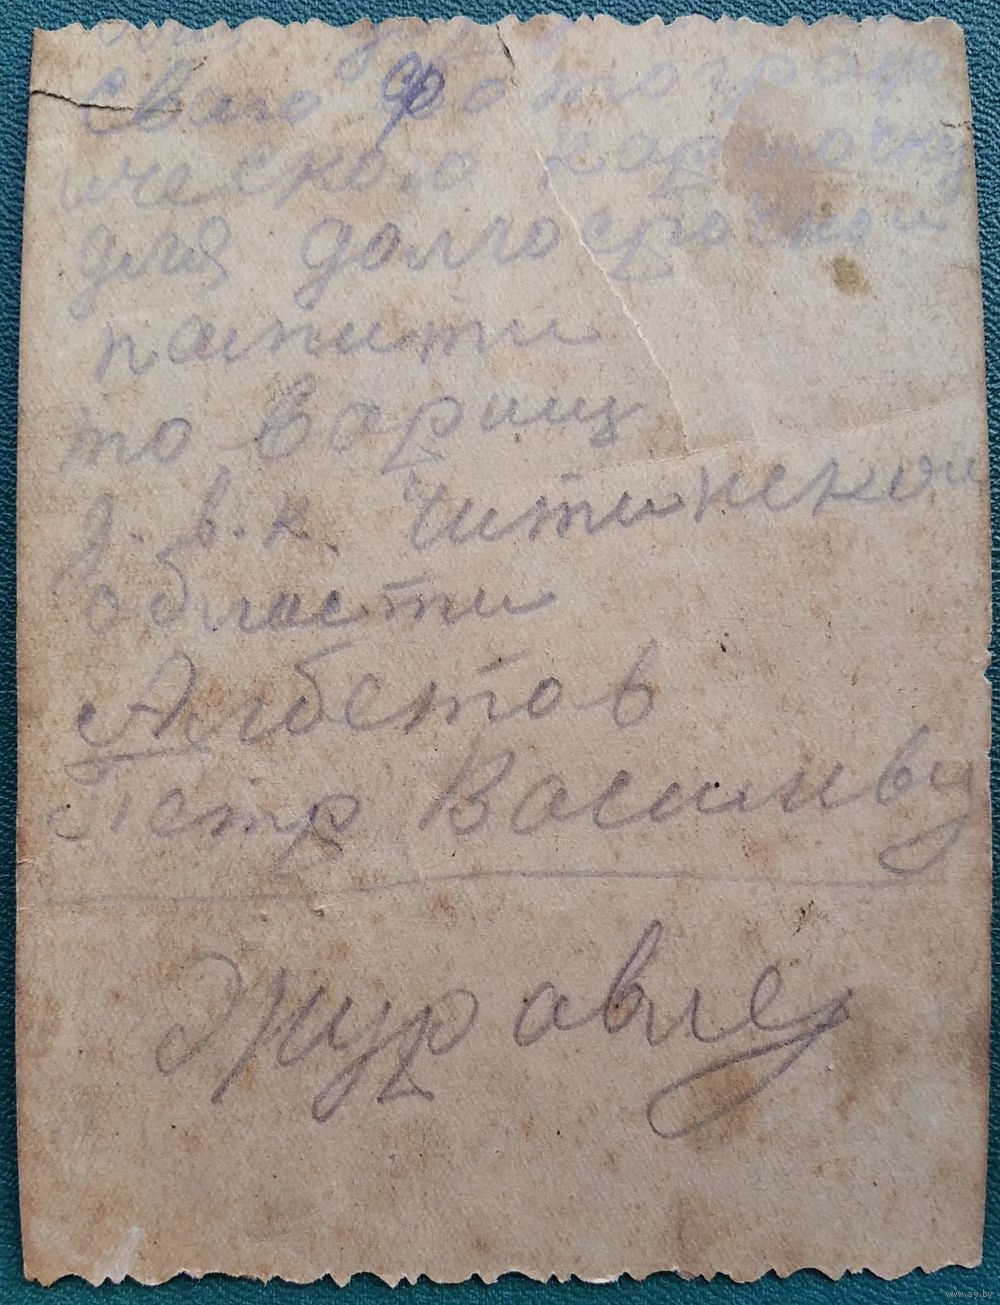 свого фотограф
ического карточку
для долгосрочной
памити
то варищ
д. в. к. Читинской
области
Албетов
Петр Василивч
Журавле
www.ay.by